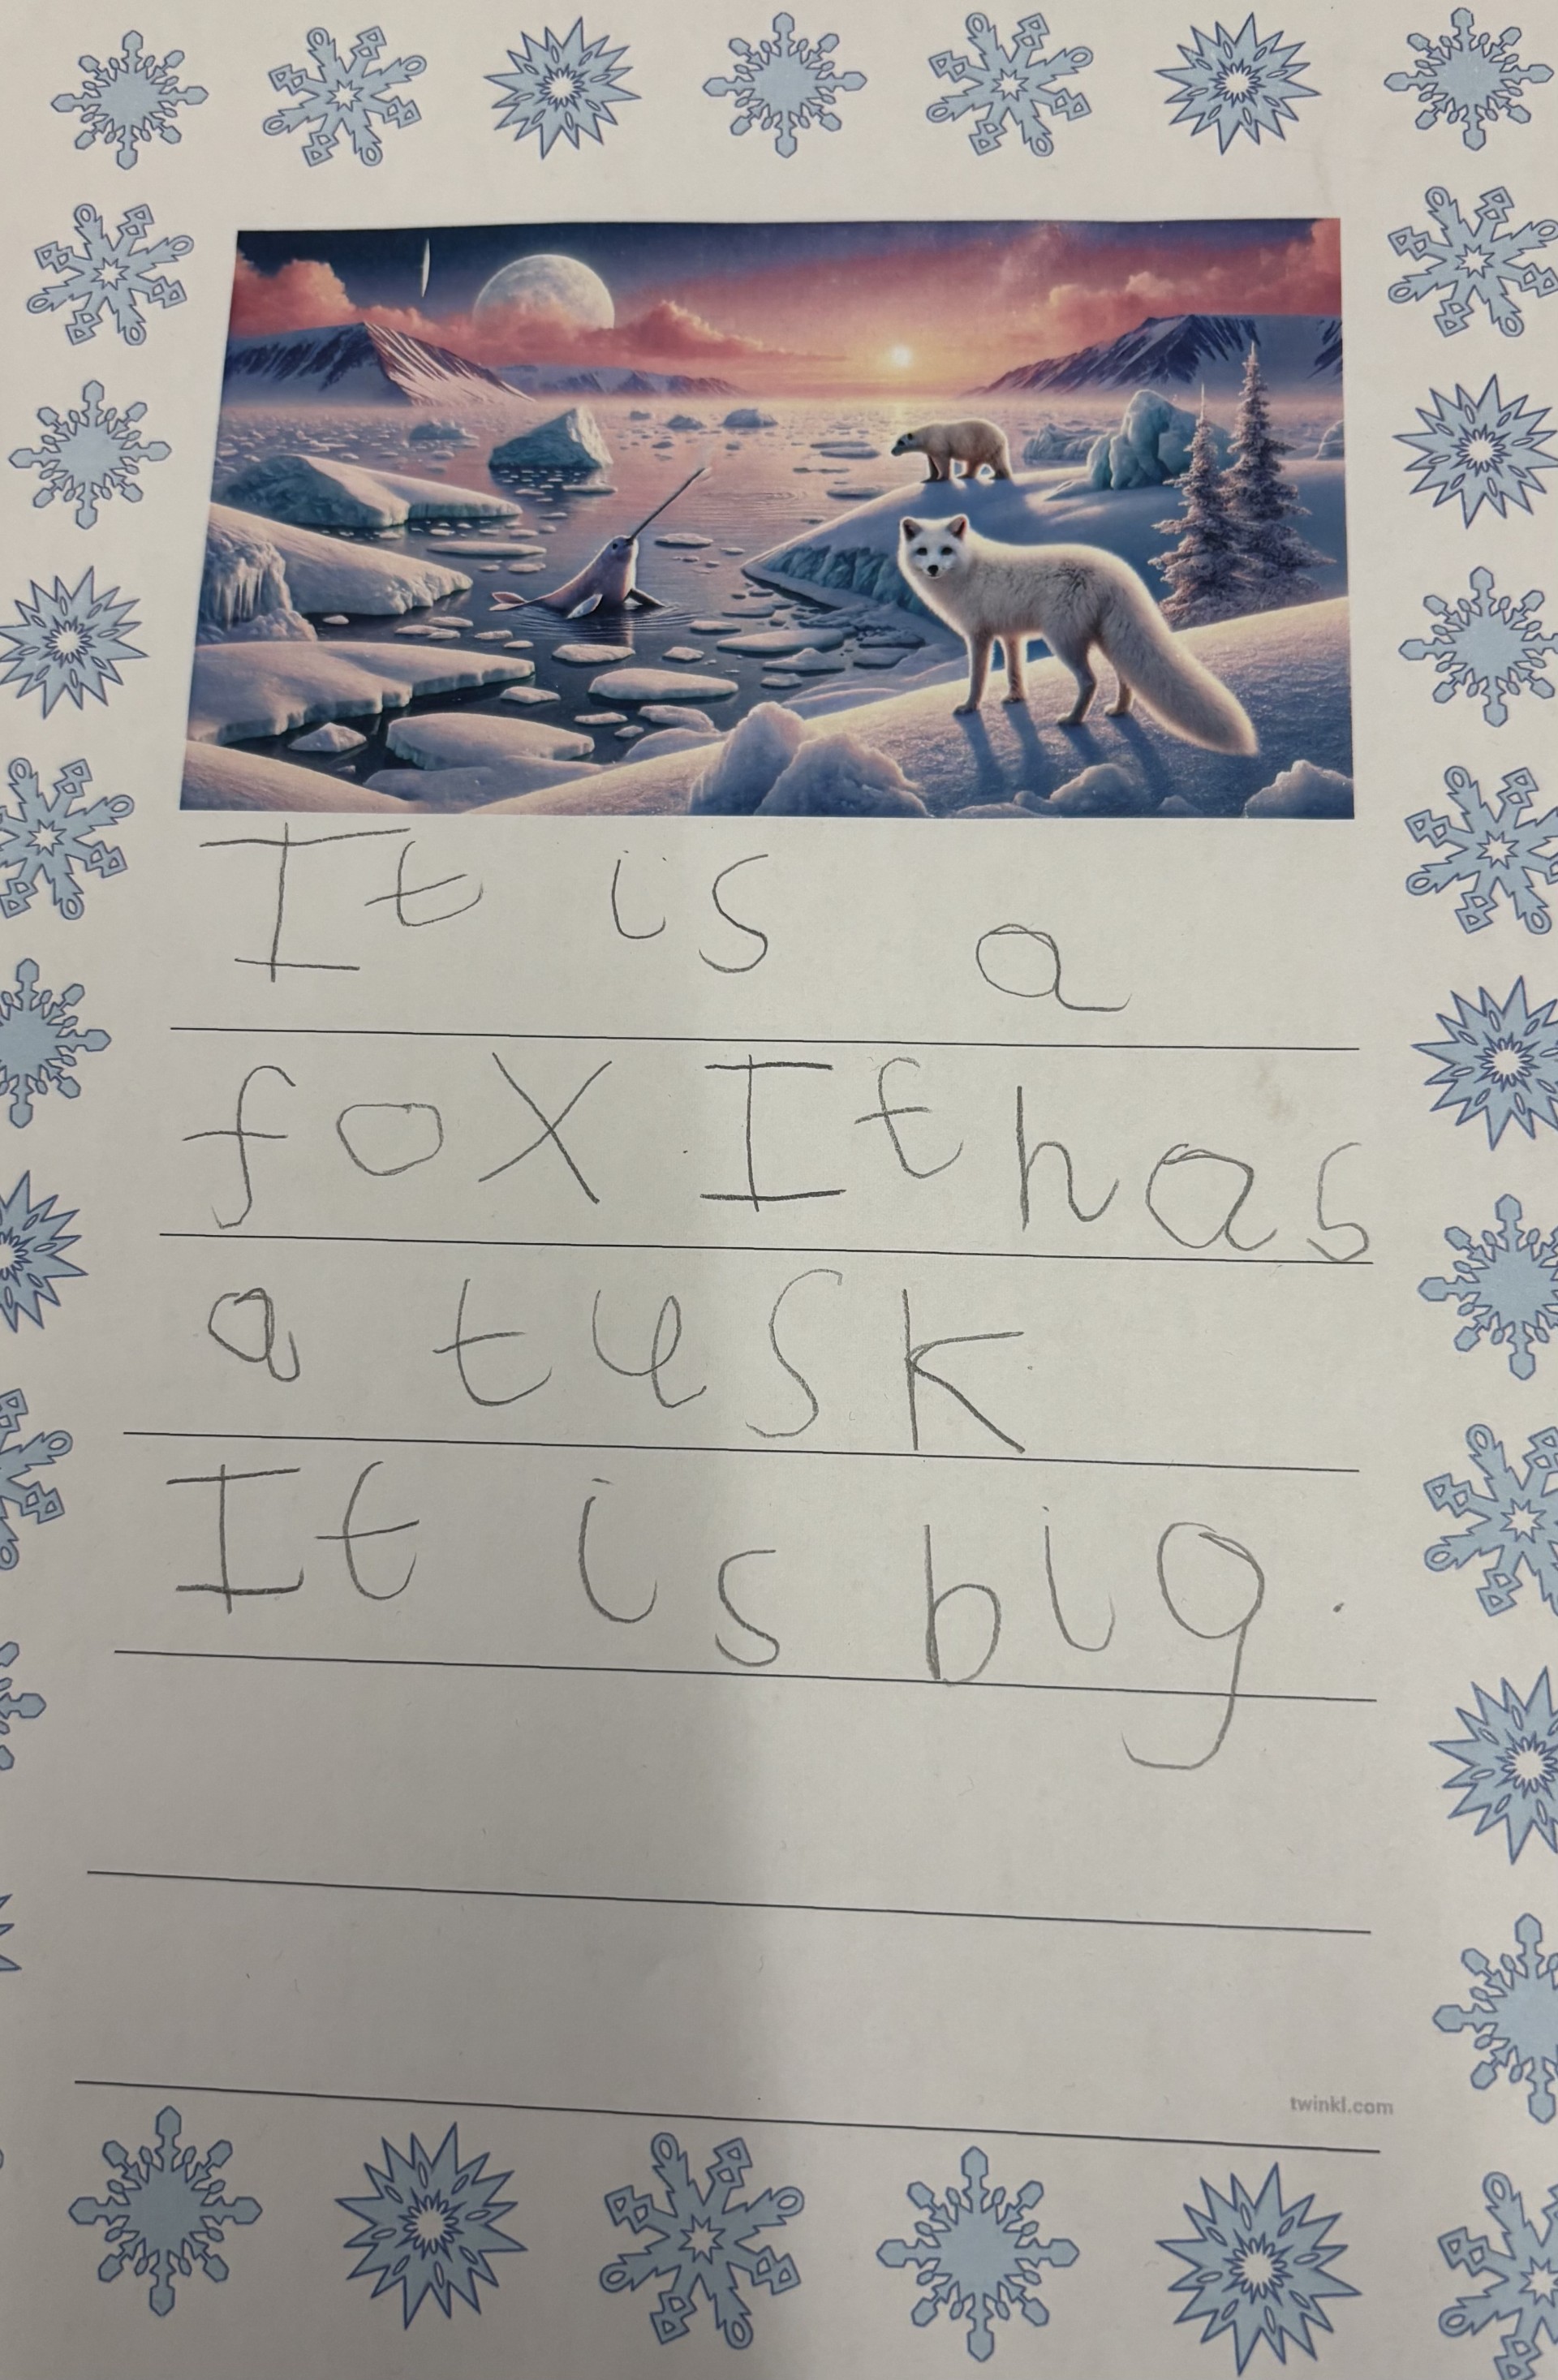 It is a
fox. It has
a tusk.
It is big.
twinkl.com